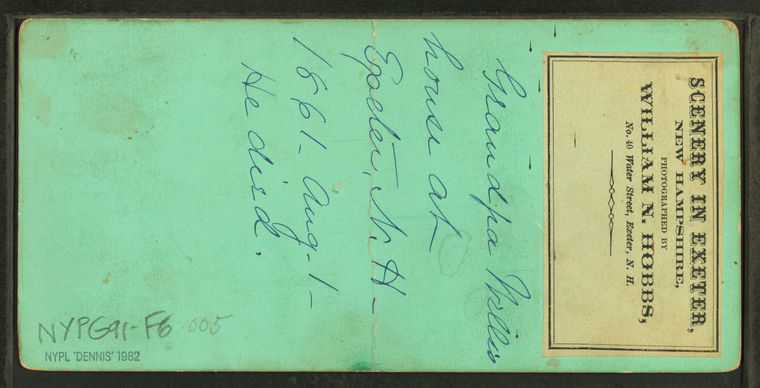 SCENERY IN EXETER,
NEW HAMPSHIRE,
PHOTOGRAPHED BY
WILLIAM N. HOBBS,
No. 40 Water Street, Exeter, N. H.
Grandpa Willis
house at
Exeter, N. H-
1861- Aug-1-
He died.
NYPG91-F6 .005
NYPL 'DENNIS' 1982